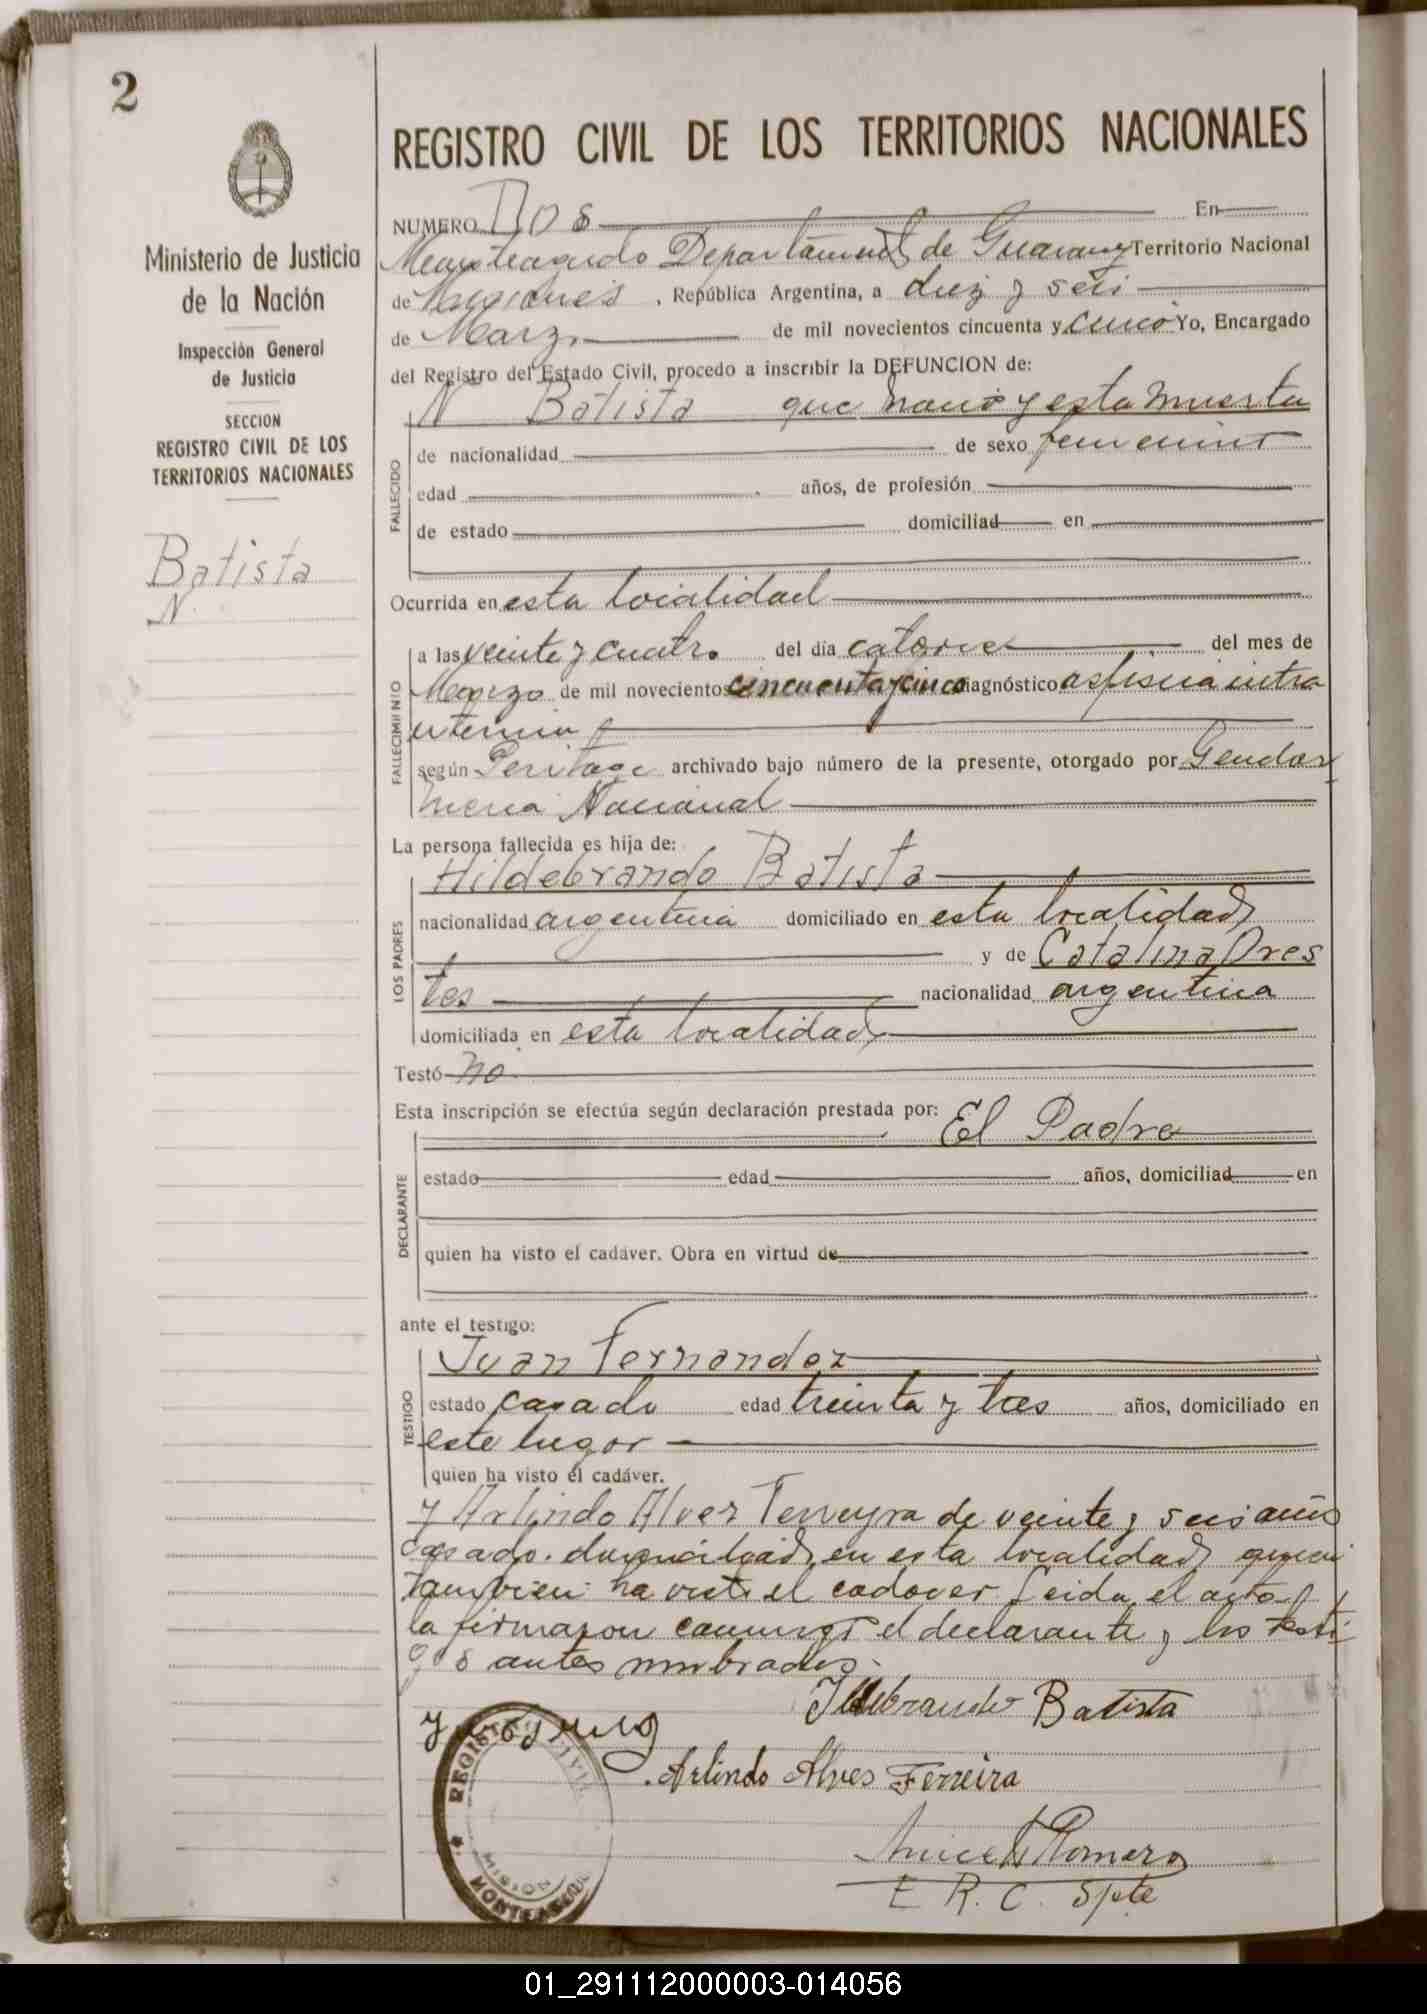 2
Ministerio de Justicia
de la Nación
Inspección General
de Justicia
SECCION
REGISTRO CIVIL DE LOS
TERRITORIOS NACIONALES
Batista
N.
REGISTRO CIVIL DE LOS TERRITORIOS NACIONALES
NUMERO Dos En
Monteagudo Departamento de Guarany Territorio Nacional
de Misiones, República Argentina, a diez y seis
de Marzo de mil novecientos cincuenta y cinco Yo, Encargado
del Registro del Estado Civil, procedo a inscribir la DEFUNCION de:
N Batista que nacio y esta muerta
FALLECIDO
de nacionalidad de sexo femenino
edad años, de profesión
de estado domiciliad en
Ocurrida en esta localidad
FALLECIMIENTO
a las veinte y cuatro del día catorce del mes de
Marzo de mil novecientos cincuenta y cinco diagnóstico asfisia intra
uterina
según Peritage archivado bajo número de la presente, otorgado por Gendar
meria Nacional
La persona fallecida es hija de:
LOS PADRES
Hildebrando Batista
nacionalidad argentina domiciliado en esta localidad
y de Catalina Ores
tes nacionalidad argentina
domiciliada en esta localidad
Testó no
Esta inscripción se efectúa según declaración prestada por:
El Padre
DECLARANTE
estado edad años, domiciliad en
quien ha visto el cadáver. Obra en virtud de
ante el testigo:
TESTIGO
Juan Fernandez
estado casado edad treinta y tres años, domiciliado en
este lugar
quien ha visto el cadáver.
y Arlindo Alvez Ferreyra de veinte y seis años
casado. domiciliado en esta localidad quien
tambien ha visto el cadaver Leida el acta
la firmaron conmigo el declarante y los testi
gos antes nombrados.
Ildebrando Batista
Arlindo Alves Ferreira
REGISTRO CIVIL
MISIONES
MONTEAGUDO
Aniceto Romero
E R. C. Spte
01_291112000003-014056